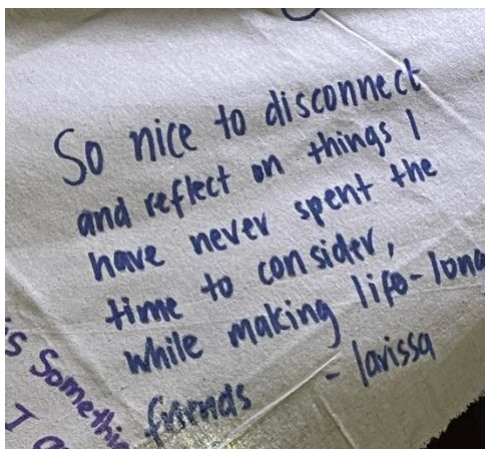 So nice to disconnect
and reflect on things I
have never spent the
time to consider,
while making life-long
friends - larissa
s Somethin
I